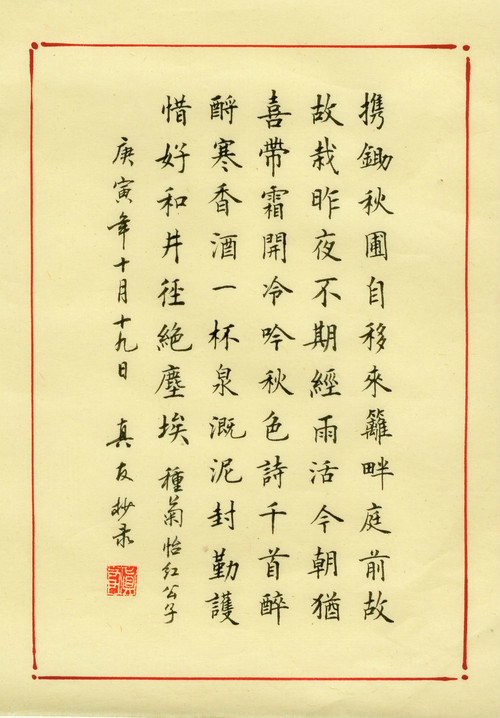 携鋤秋圃自移來籬畔庭前故
故栽昨夜不期經雨活今朝猶
喜帶霜開冷吟秋色詩千首醉
酹寒香酒一杯泉溉泥封勤護
惜好和井徑絶塵埃 種菊怡红公子
庚寅年十月十九日 真友抄录